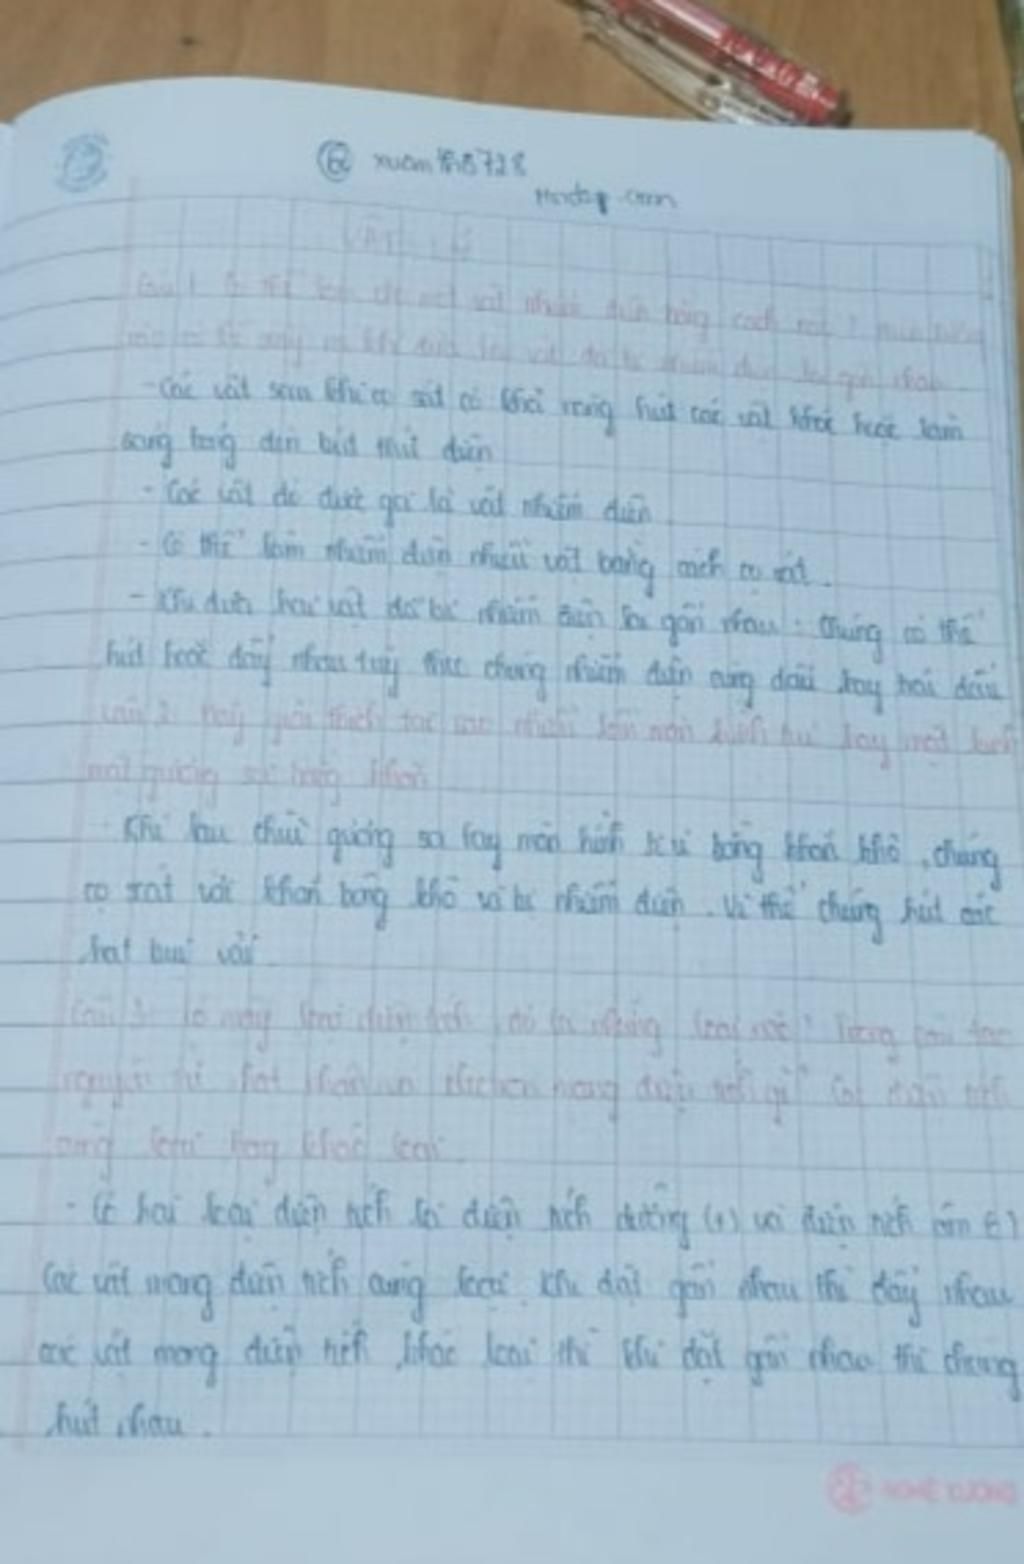 VẬT LÍ
Câu 1: Có thể làm cho một vật nhiễm điện bằng cách nào?
khi đưa hai vật đã bị nhiễm điện lại gần nhau
- Các vật sau khi cọ sát có khả năng hút các vật khác hoặc làm
sáng bóng đèn bút thử điện
- Các vật đó được gọi là vật nhiễm điện
- Có thể làm nhiễm điện nhiều vật bằng cách cọ sát.
- Khi đưa hai vật đã bị nhiễm điện lại gần nhau: Chúng có thể
hút hoặc đẩy nhau tuỳ theo chúng nhiễm điện cùng dấu hay trái dấu
Câu 2: Hãy giải thích tại sao nhiều lần màn hình ti vi hay mặt kính
mặt gương soi bằng khăn
Khi lau chùi gương soi hay màn hình ti vi bằng khăn khô, chúng
cọ sát với khăn bông khô và bị nhiễm điện. Vì thế chúng hút các
hạt bụi vải
Câu 3: Có mấy loại điện tích, đó là những loại nào? Trong cấu tạo
nguyên tử hạt nhân và electron mang điện tích gì? Các điện tích
cùng loại hay khác loại
- Có hai loại điện tích là điện tích dương (+) và điện tích âm (-)
Các vật mang điện tích cùng loại khi đặt gần nhau thì đẩy nhau
các vật mang điện tích khác loại thì khi đặt gần nhau thì chúng
hút nhau.